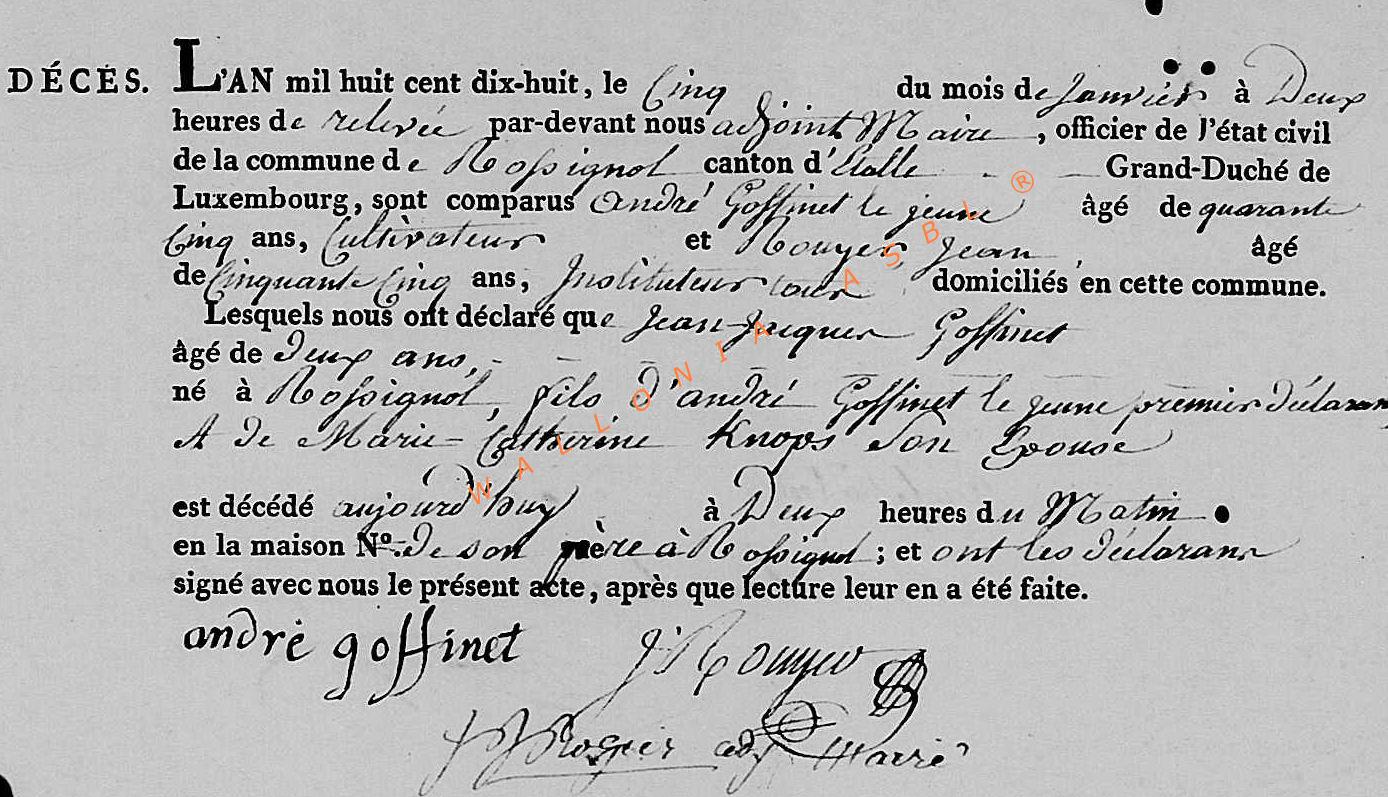 DÉCÈS. L'AN mil huit cent dix-huit, le Cinq du mois de Janvier à Deux
heures de relevée par-devant nous adjoint Maire, officier de l'état civil
de la commune de Rossignol canton d'Etalle Grand-Duché de
Luxembourg, sont comparus andré Goffinet le jeune âgé de quarante
Cinq ans, Cultivateur et Rouyer Jean, âgé
de Cinquante Cinq ans, Instituteur tous domiciliés en cette commune.
Lesquels nous ont déclaré que Jean-Jacques Goffinet
âgé de Deux ans,
né à Rossignol, fils d'andré Goffinet le jeune premier déclarant
et de Marie-Catherine Knops Son Epouse
est décédé aujourd'huy à Deux heures du Matin
en la maison N.º de son père à Rossignol; et ont les déclarans
signé avec nous le présent acte, après que lecture leur en a été faite.
andré goffinet J Rouyer
adj Maire
WALLONIA ASBL ®